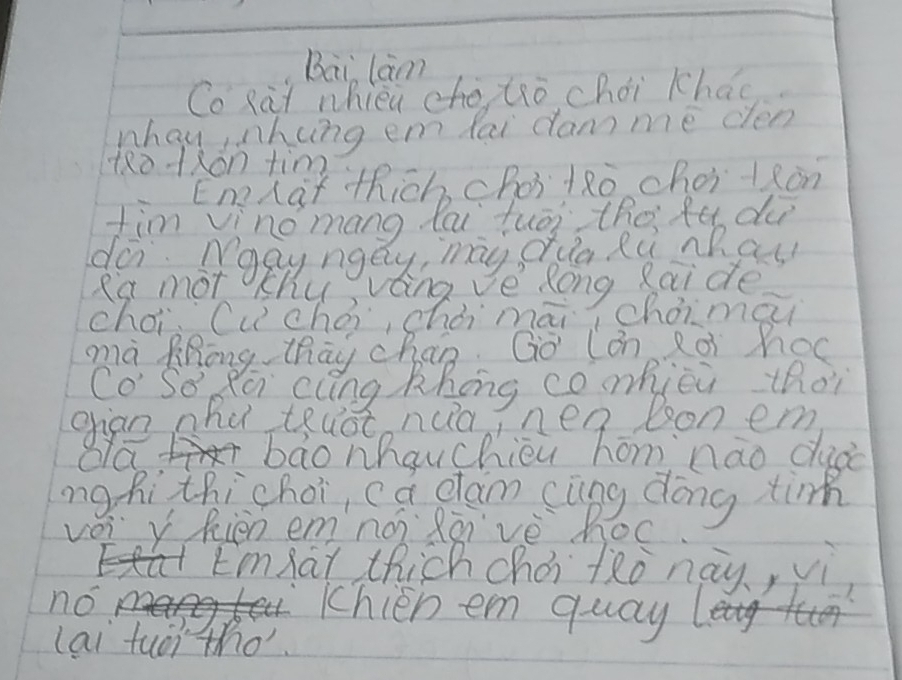 Bài làm
Có rất nhiều chò trò chơi khác
nhau, nhưng em lại đam mê đến
trò trốn tìm.
Em rất thích chơi trò chơi trốn
tìm vì nó mang lại tuổi thơ dữ
dội. Ngày ngày, mấy đứa rủ nhau
ra một khu vắng vẻ rộng rãi để
chơi. Cứ chơi, chơi mãi, chơi mãi
mà không thấy chán. Giờ lớn rồi học
Cơ Sở rồi cũng không có nhiều thời
gian như trướt nữa, nên bọn em
đã bảo nhau chiều hôm nào được
nghỉ thì chơi, cả đám cũng đồng tình
với ý kiến em nói rồi về học.
Em rất thích chơi trò này, vì
nó khiến em quay
lại tuổi thơ.